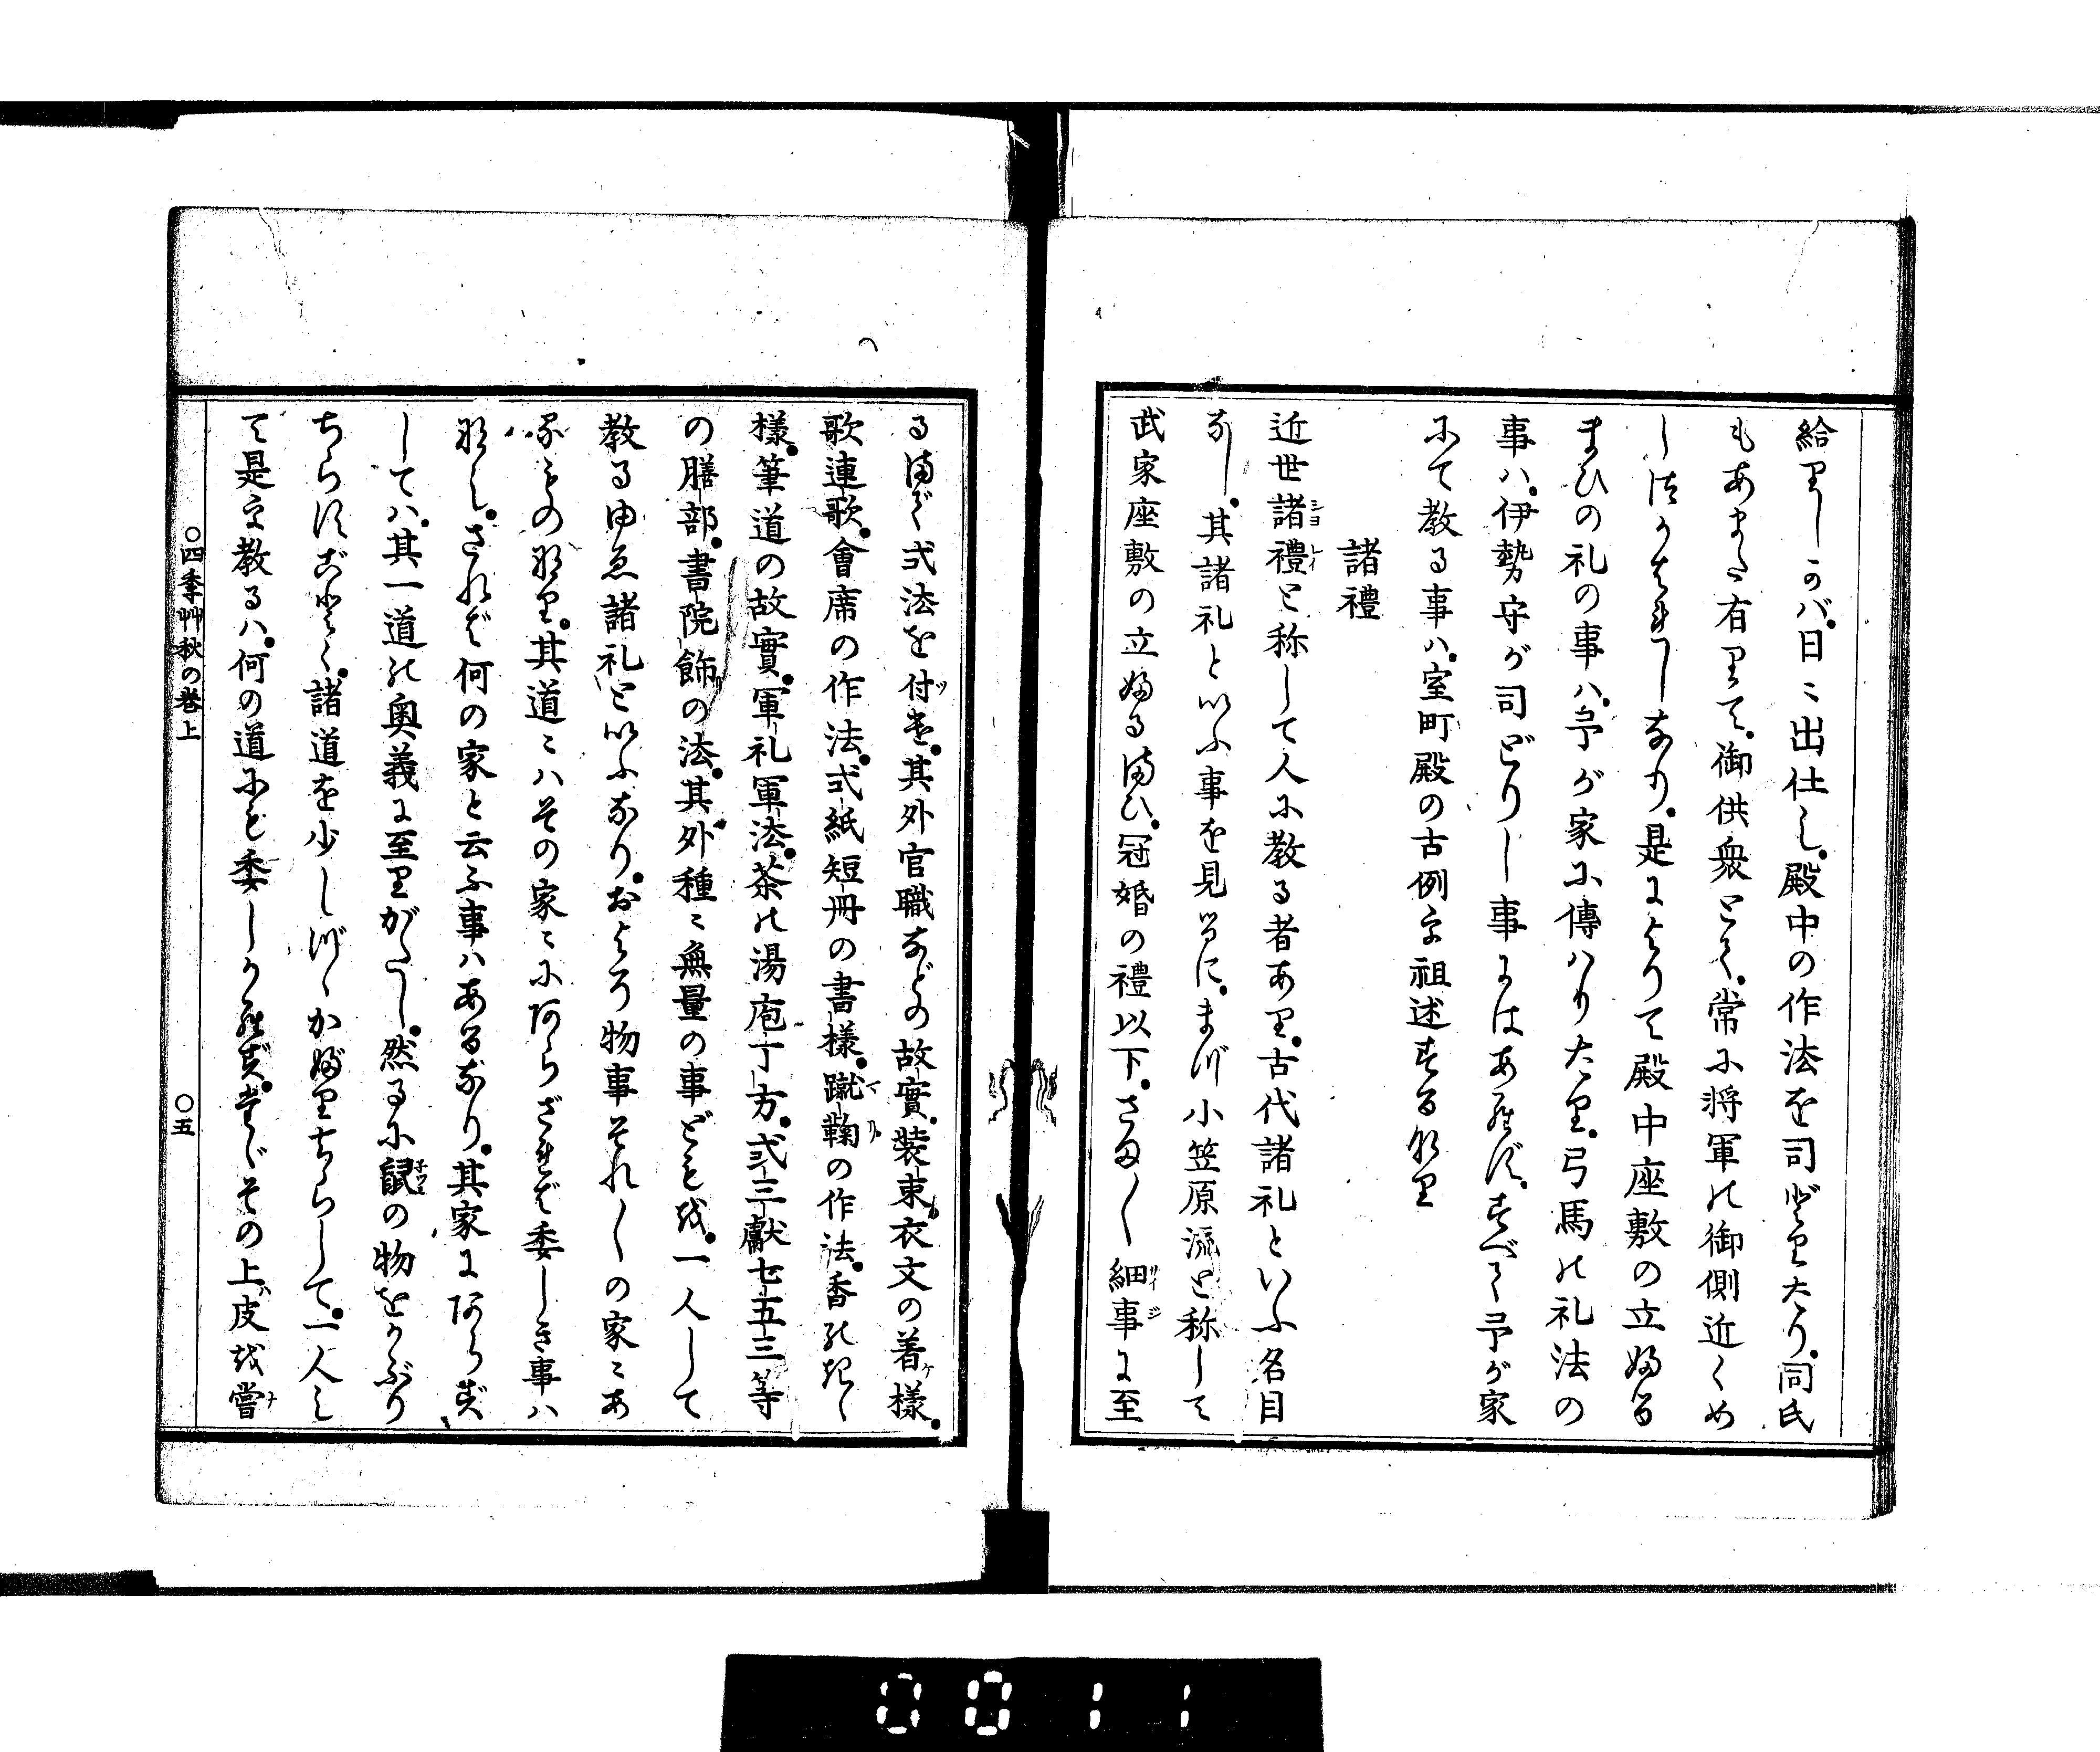 給りしかバ、日々出仕し、殿中の作法を司どりたり、同氏
もあまた有りて、御供衆とて、常に将軍の御側近くめ
しつかはれしなり、是によりて殿中座敷の立ふる
まひの礼の事ハ、予が家に傳ハりたり、弓馬の礼法の
事ハ、伊勢守が司どりし事にはあらず、すべて予が家
にて教る事ハ、室町殿の古例を祖述する也
諸禮
近世諸禮と称して人に教る者あり、古代諸礼といふ名目
なし、其諸礼といふ事を見るに、まづ小笠原流と称して
武家座敷の立ふるまひ、冠婚の禮以下、さま〳〵細事に至
るまで式法を付す、其外官職などの故實、装束衣文の着様、
歌連歌、會席の作法、式紙短冊の書様、蹴鞠の作法、香の炷
様、筆道の故實、軍礼軍法、茶の湯庖丁方、式三献七五三等
の膳部、書院飾の法、其外種々無量の事どもを、一人して
教るゆゑ諸礼といふなり、およそ物事それ〳〵の家々あ
るものなり、其道々ハその家々にあらざれば委しき事ハ
なし、されば何の家と云ふ事ハあるなり、其家にあらず
してハ、其一道の奥義に至りがたし、然るに鼠の物をかぶり
ちらすごとく、諸道を少しづゝかぶりちらして、一人し
て是を教るハ、何の道にも委しからず、たゞその上皮を嘗
○四季艸秋の巻上
○五
0011